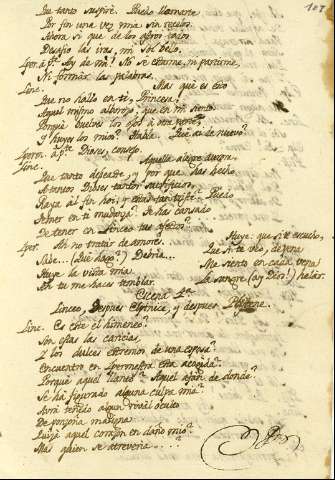 107
Que tanto suspiré. Puedo llamarte
Por fin una vez mia sin recelos.
Ahora sí que de los otros
Desafio las iras, mi Sol bello.
Yper. á pte. Ay de mi! No sé estarme, ni partirme,
Ni formar las palabras.
Linc. Mas qué es esto
Que no hallo en ti, Princesa,
Aquel mismo alborozo que en mi siento.
Porqué vuelves los ojos á otra parte,
Y huyes los mios? Habla. Qué hay de nuevo?
Yperm. á pte. Dioses, consejo.
Linc. Aquella alegre aurora,
Que tanto deseaste, y por que has hecho
A tantos Dioses tantos sacrificios,
Raya al fin hoy, y estás tan triste? Puedo
Temer en ti mudanza? Te has cansado
De tener en Linceo tus afectos?
Yper. Ah no trates de amores.
Sabe... (Qué hago?) Debria...
Huye la vista mia
Ah tu me haces temblar.
Huye: que si te escucho,
Que si te veo, de pena
Me siento en cada vena
La sangre (ay Dios!) helar.
Escena 4a.
Linceo, Despues Elpinice, y despues Plistene.
Linc. Es este el himeneo?
Son estas las caricias,
Y los dulces extremos de una esposa?
Encuentro en Ypermestra esta acogida?
Porqué aquel llanto? Aquel afán de donde?
Se há figurado alguna culpa mia?
Avrá tenido algun rival oculto
De ponzoña maligna
Quizá aquel corazon en daño mio?
Mas quien se atreveria....?